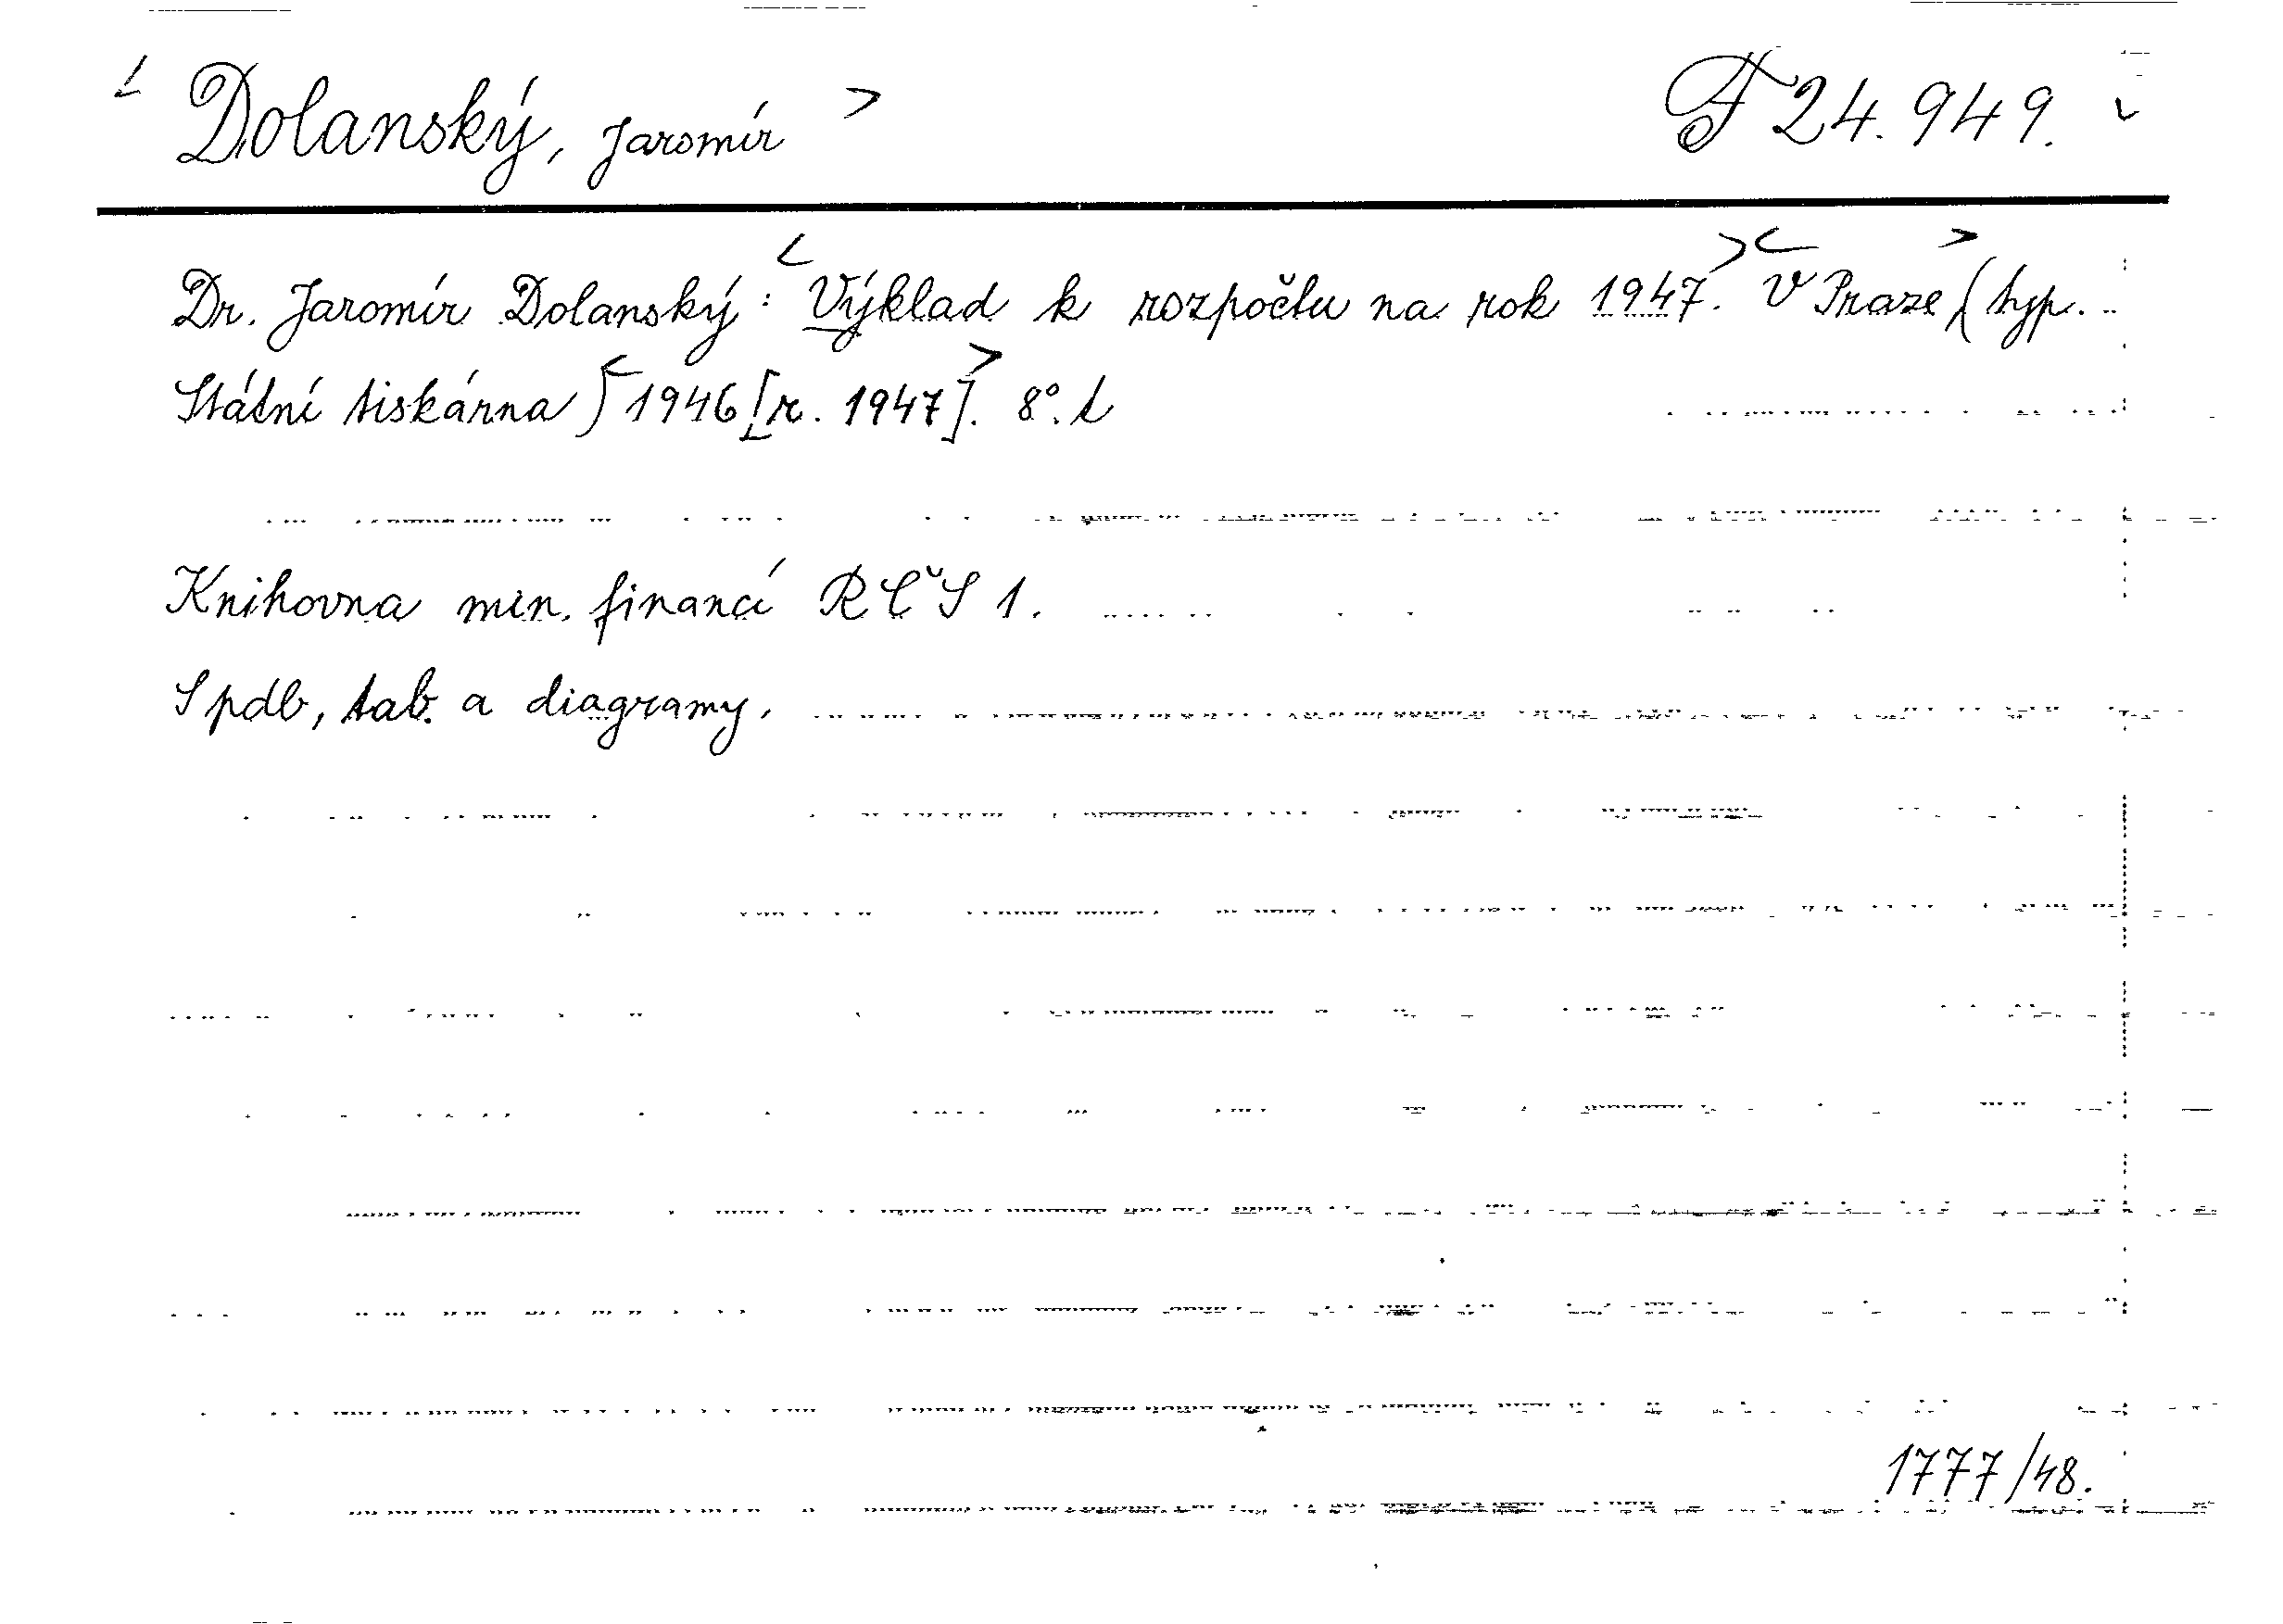 < Dolanský, Jaromír > F 24.949.
Dr. Jaromír Dolanský: <Výklad k rozpočtu na rok 1947.> <V Praze> (typ.
Státní tiskárna) <1946 [r. 1947].> 8°.
Knihovna min. financí RČS 1.
S pdb, tab. a diagramy.
1777/48.